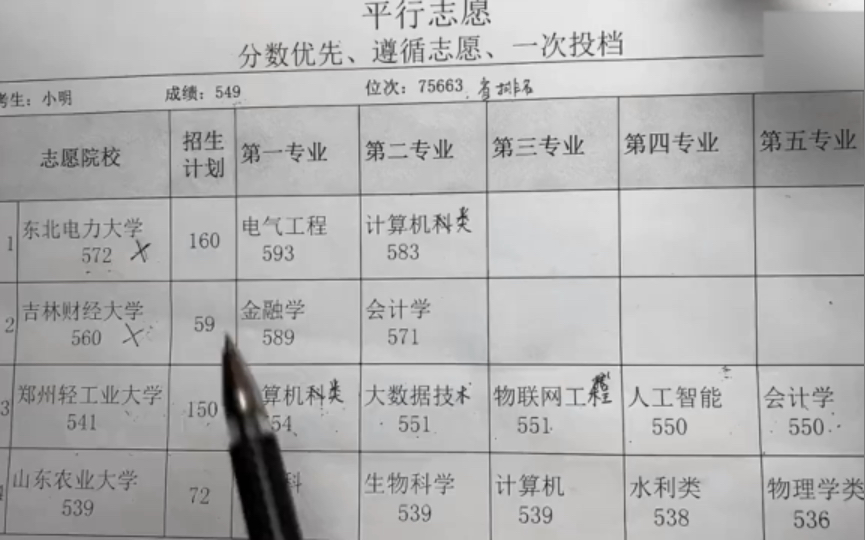 平行志愿
分数优先、遵循志愿、一次投档
考生：小明 成绩：549 位次：75663 省排名
志愿院校 招生计划 第一专业 第二专业 第三专业 第四专业 第五专业
1 东北电力大学 160 电气工程 计算机科类
572 X 593 583
2 吉林财经大学 59 金融学 会计学
560 X 589 571
3 郑州轻工业大学 150 算机科类 大数据技术 物联网工程 人工智能 会计学
541 54 551 551 550 550
山东农业大学 72 科 生物科学 计算机 水利类 物理学类
539 539 539 538 536